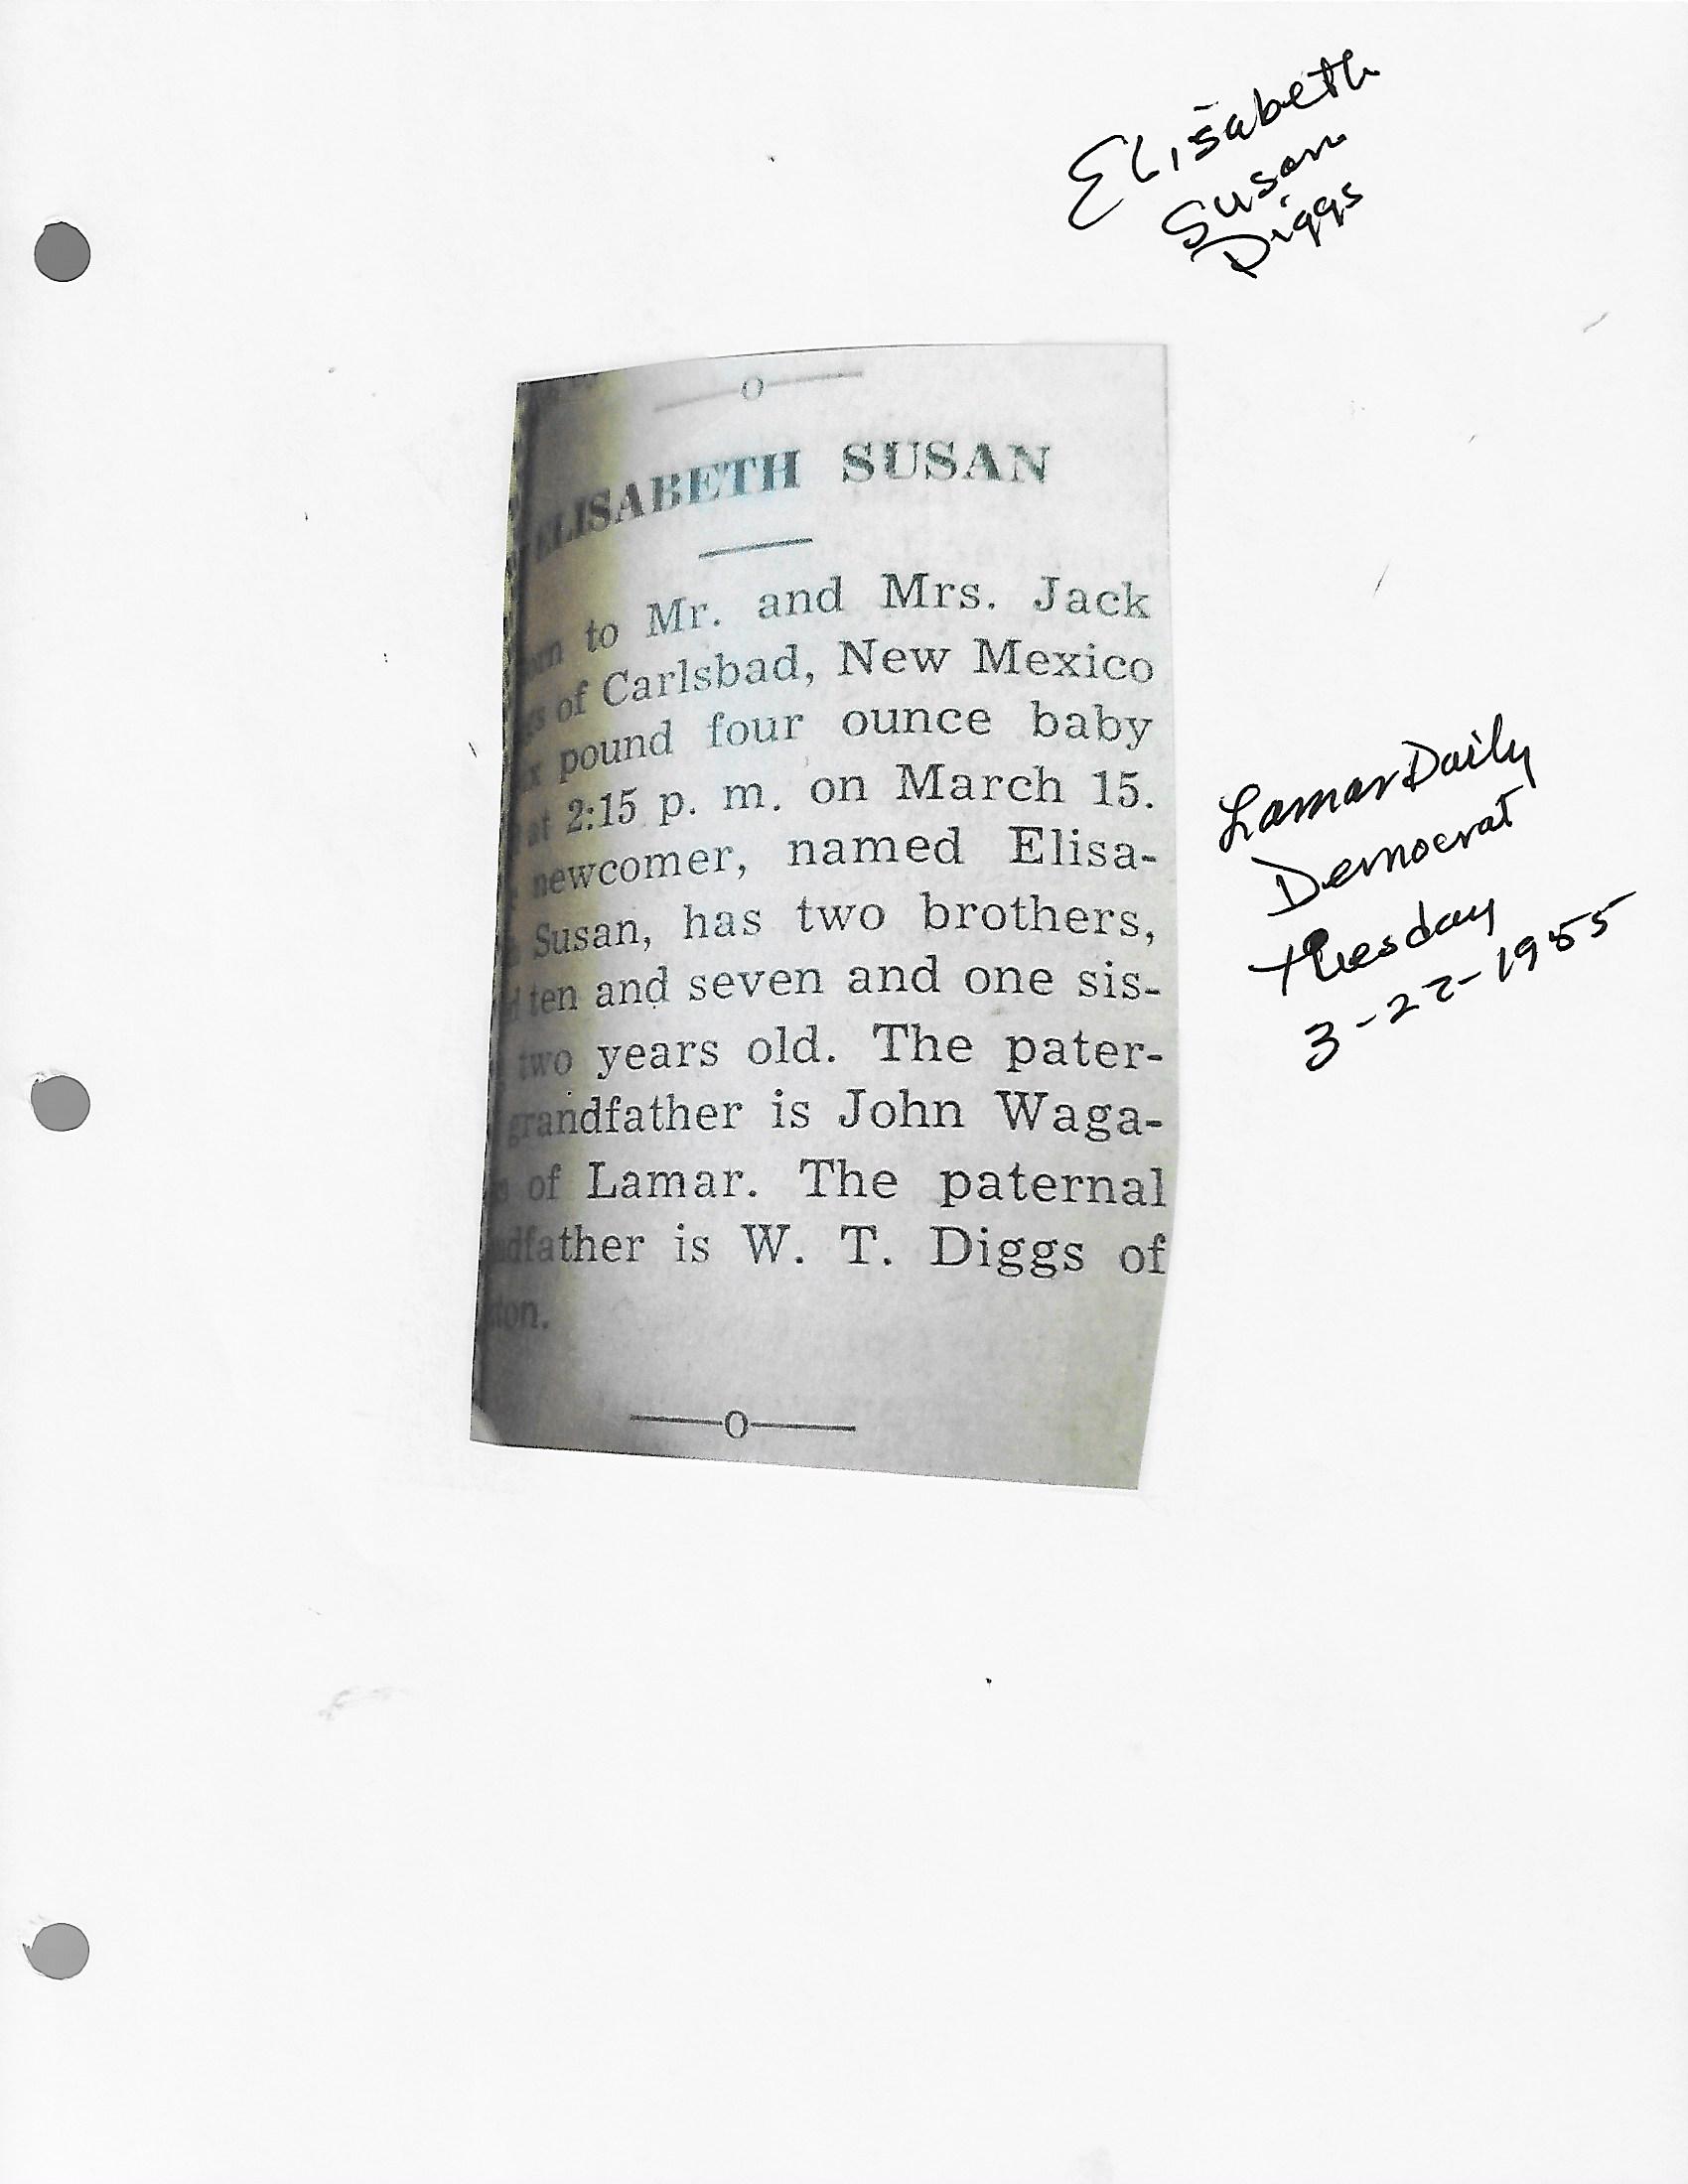 Elisabeth
Susan
Diggs
ELISABETH SUSAN
to Mr. and Mrs. Jack
of Carlsbad, New Mexico
pound four ounce baby
at 2:15 p. m. on March 15.
newcomer, named Elisa-
Susan, has two brothers,
ten and seven and one sis-
two years old. The pater-
grandfather is John Waga-
of Lamar. The paternal
dfather is W. T. Diggs of
ton.
Lamar Daily
Democrat
Tuesday
3-22-1955